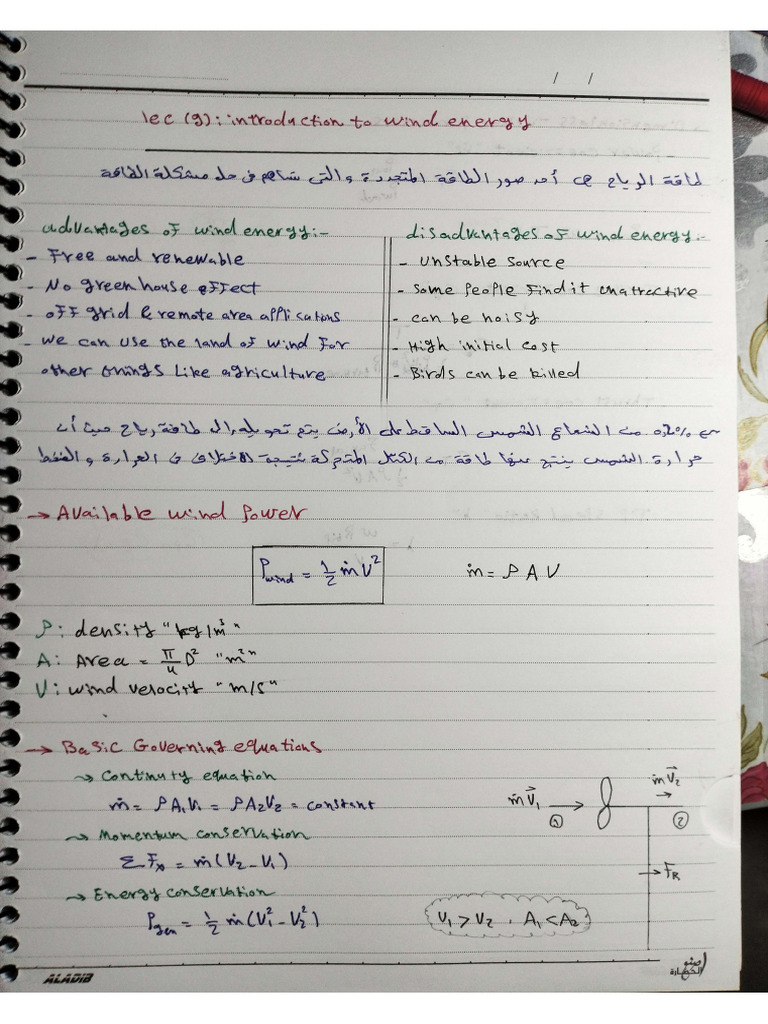 / /
lec (9): introduction to wind energy
طاقة الرياح هي أحد صور الطاقة المتجددة والتي تساهم في حل مشكلة الطاقة
advantages of wind energy:-
- Free and renewable
- No green house effect
- off grid & remote area applications
- we can use the land of wind for
other things like agriculture
disadvantages of wind energy:-
- unstable source
- some people find it unatractive
- can be noisy
- High initial cost
- Birds can be killed
0.2% من الشعاع الشمسي الساقط على الأرض يتم تحويله إلى طاقة رياح حيث أن
حرارة الشمس ينتج عنها طاقة من الكتل المتحركة نتيجة الاختلاف في الحرارة والضغط
→ Available wind power
P_wind = 1/2 ṁV²
ṁ = ρ A V
ρ: density "kg/m³"
A: Area = π/4 D² "m²"
V: wind velocity "m/s"
→ Basic Governing equations
↝ Continuty equation
ṁ = ρA₁V₁ = ρA₂V₂ = constant
↝ Momentum conservation
ΣFₓ = ṁ(V₂ - V₁)
↝ Energy conservation
P_gen = 1/2 ṁ(V₁² - V₂²)
ṁV⃗₁ →
①
ṁV⃗₂
→
②
→ F_R
V₁ > V₂ , A₁ < A₂
ALADIB